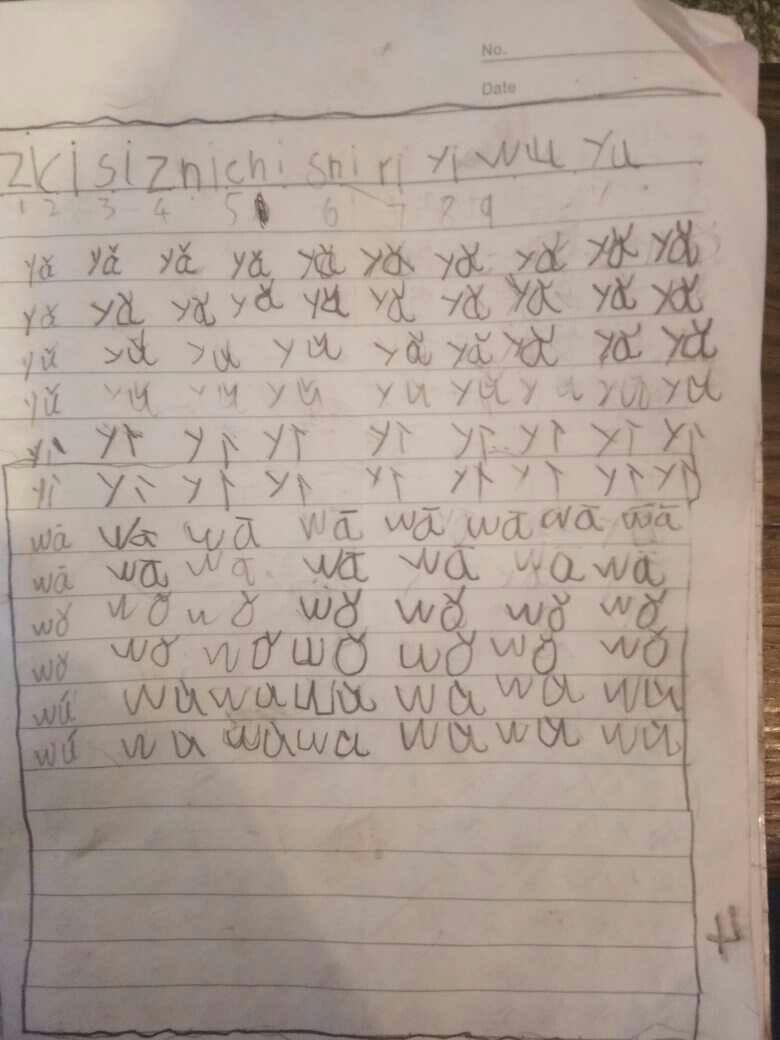 No.
Date
zi ci si zhi chi shi ri yi wu yu
1 2 3 4 5 6 7 8 9
yǎ yǎ yǎ yǎ yǎ yǎ yǎ yǎ yǎ yǎ
yǎ yǎ yǎ yǎ yǎ yǎ yǎ yǎ yǎ
yǔ yǔ yu yǔ yǎ yǎ yǎ yǎ yǎ
yǔ yǔ yu yǔ yu yǔ yu yu yu
yì yì yì yì yì yì yì yì yì
yì yì yì yì yì yì yì yì yì
wā wā wā wā wā wā wā wā
wā wā wa wā wā wa wā
wǒ wǒ wǒ wǒ wǒ wǒ wǒ
wǒ wǒ wǒ wǒ wǒ wǒ wǒ
wú wu wa wa wa wa wu
wú wa wa wa wa wa wa